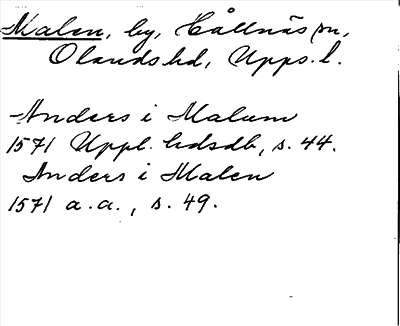 Malen, by, Hållnäs sn,
Olands hd, Upps. l.
Anders i Malum
1571 Uppl. hdsdb, s. 44.
Anders i Malen
1571 a.a., s. 49.